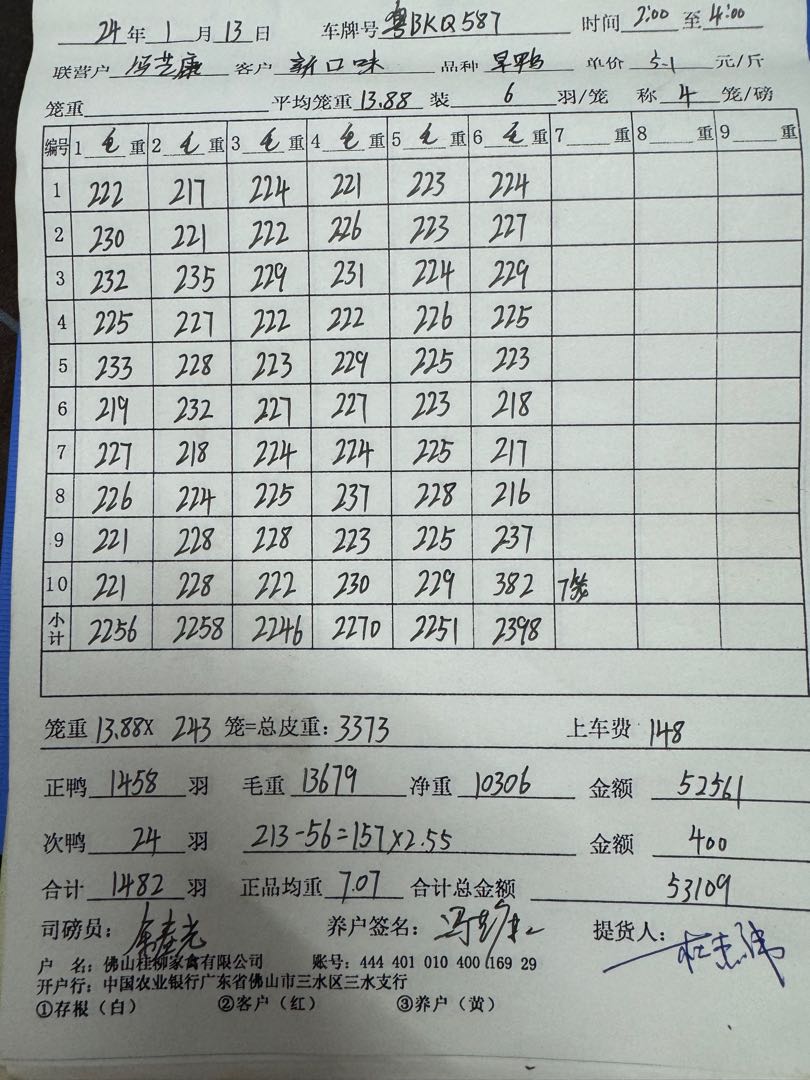 24 年 1 月 13 日 车牌号 粤BKQ587 时间 2:00 至 4:00
联营户 冯芝康 客户 新口味 品种 早鸭 单价 5.1 元/斤
笼重 平均笼重 13.88 装 6 羽/笼 称 4 笼/磅
编号 1 毛 重 2 毛 重 3 毛 重 4 毛 重 5 毛 重 6 毛 重 7 重 8 重 9 重
1 222 217 224 221 223 224
2 230 221 222 226 223 227
3 232 235 229 231 224 229
4 225 227 222 222 226 225
5 233 228 223 229 225 223
6 219 232 227 227 223 218
7 227 218 224 224 225 217
8 226 224 225 237 228 216
9 221 228 228 223 225 237
10 221 228 222 230 229 382 7笼
小计 2256 2258 2246 2270 2251 2398
笼重 13.88X 243 笼=总皮重: 3373 上车费 148
正鸭 1458 羽 毛重 13679 净重 10306 金额 52561
次鸭 24 羽 213-56=157x2.55 金额 400
合计 1482 羽 正品均重 7.07 合计总金额 53109
司磅员: 养户签名: 提货人:
户 名: 佛山桂柳家禽有限公司 账号: 444 401 010 400 169 29
开户行: 中国农业银行广东省佛山市三水区三水支行
①存根（白） ②客户（红） ③养户（黄）